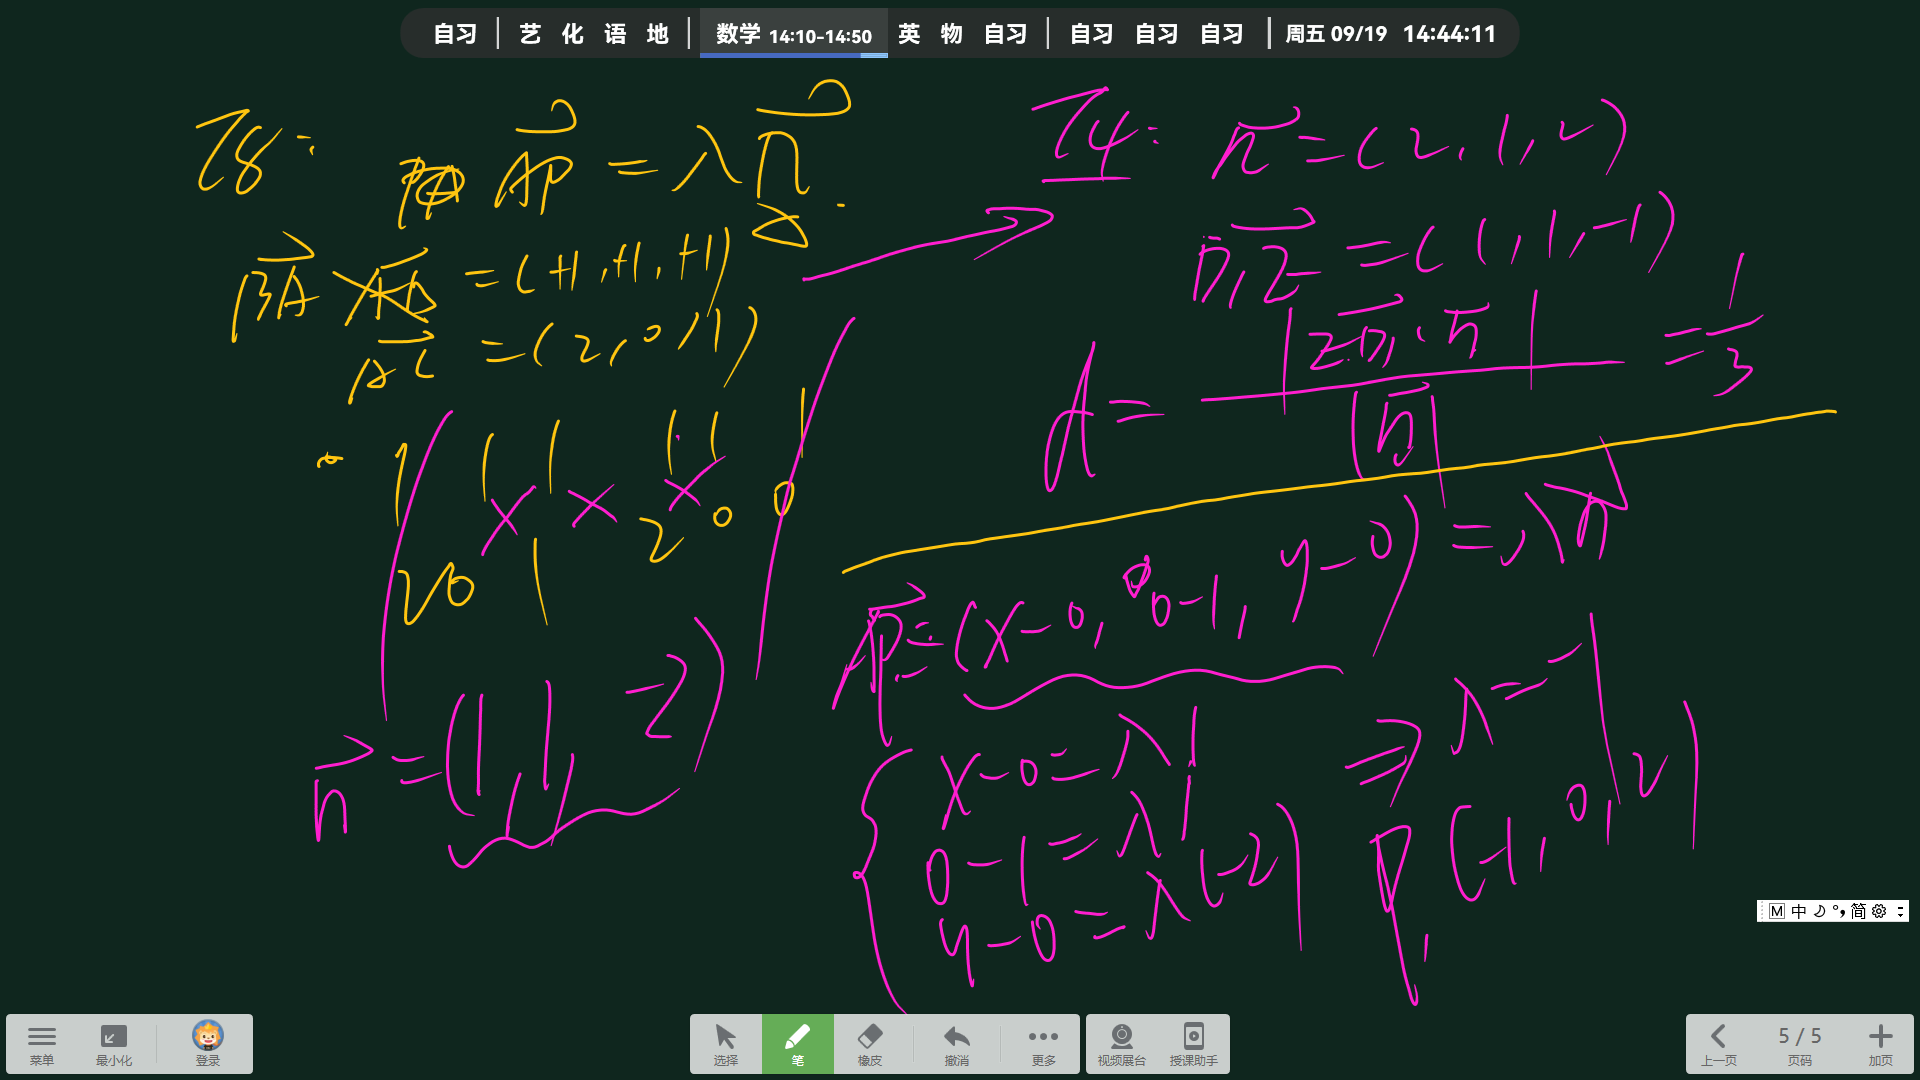 自习 | 艺 化 语 地 | 数学 14:10-14:50 英 物 自习 | 自习 自习 自习 | 周五 09/19 14:44:11
T8:
AP = λn
BA = (+1,+1,+1)
AC = (2,0,1)
1 1 1 1 1 1
2 0 1 2 0 0
n = (1,1,-2)
T4: n = (2,1,2)
D₁E = (1,1,-1)
d = |ED₁·n| / |n| = 1/3
AP = (x-0, 0-1, y-0) = λn
x-0=λ1
0-1=λ1
y-0=λ(-2)
⇒ λ=-1
P(-1,0,2)
M 中 简
菜单 最小化 登录
选择 笔 橡皮 撤消 更多
视频展台 授课助手
上一页 5 / 5 页码 加页